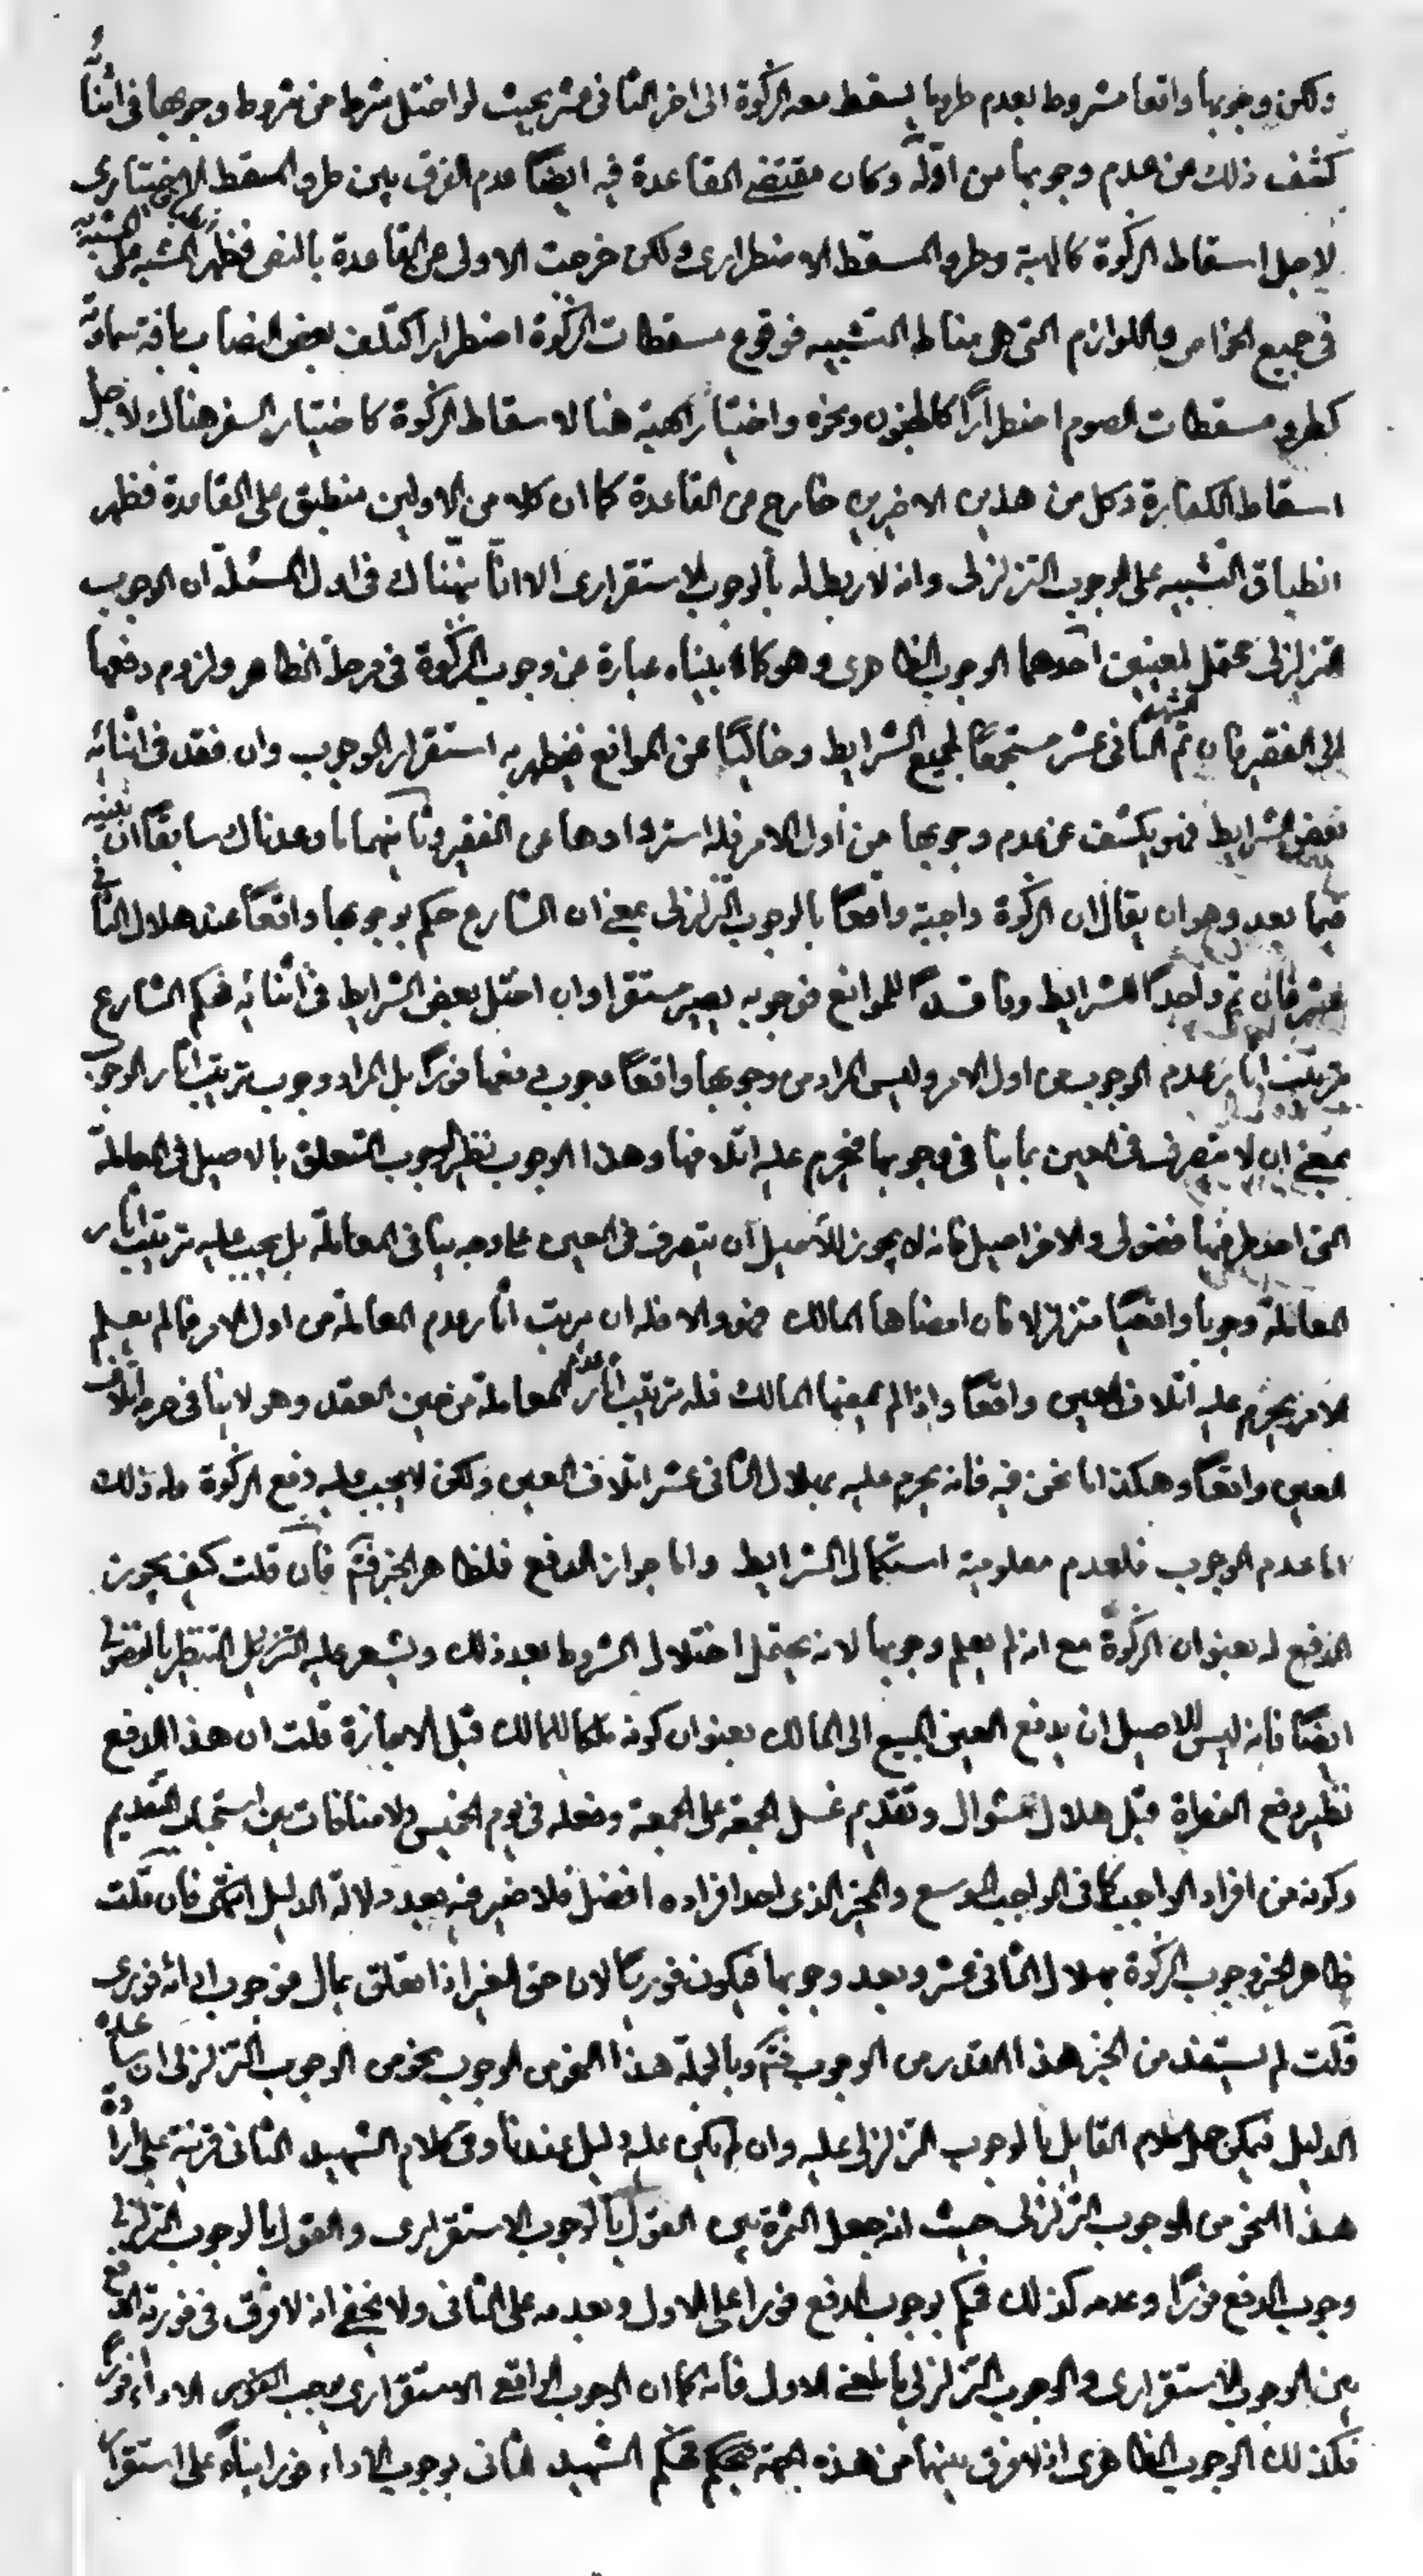 ولكن وجوبها واقعا مشروط بعدم طرو ما يسقط معه الزكوة الى اخر الثانى عشر بحيث لو اختل شرط من شروط وجوبها فى اثنائه
كشف ذلك عن عدم وجوبها من اوله وكان مقتضى القاعدة فيه ايضا عدم الفرق بين طرو المسقط الاختيارى
لاجل اسقاط الزكوة كالهبة وطرو المسقط الاضطرارى ولكن خرجت الاولى عن القاعدة بالنص فظهر انطباق المشبه على المشبه به
فى جميع الخواص واللوازم التى هى مناط التشبيه فوقوع مسقطات الزكوة اضطرارا كتلف بعض النصاب بافة سماوية
كطرو مسقطات الصوم اضطرارا كالجنون ونحوه واختيار الهبة هنا لاسقاط الزكوة كاختيار السفر هناك لاجل
اسقاط الكفارة وكل من هذين الاخيرين خارج من القاعدة كما ان كلا من الاولين منطبق على القاعدة فظهر
انطباق التشبيه على الوجوب التزلزلى وانه لا ربط له بالوجوب الاستقرارى الا انا نبهناك فى اول المسئلة ان الوجوب
التزلزلى محتمل لمعنيين احدهما الوجوب الظاهرى وهو كما بيناه عبارة عن وجوب الزكوة فى مرحلة الظاهر ولزوم دفعها
الى الفقير فان تم الشهر الثانى عشر مستجمعا لجميع الشرايط وخاليا عن الموانع فيظهر به استقرار الوجوب وان فقد فى اثنائه
بعض الشرايط فهو يكشف عن عدم وجوبها من اول الامر فله استردادها من الفقير وثانيهما ما وعدناك سابقا ان نبينه
فيما بعد وهو ان يقال ان الزكوة واجبة واقعا بالوجوب التزلزلى بمعنى ان الشارع حكم بوجوبها واقعا عند هلال الثانى
عشر فان تم واجدا للشرايط وفاقدا للموانع فوجوبه يصير مستقرا وان اختل بعض الشرايط فى اثنائه فحكم الشارع
بترتيب اثار عدم الوجوب من اول الامر وليس المراد من وجوبها واقعا وجوب دفعها فورا بل المراد وجوب ترتيب اثار الوجوب
بمعنى ان لا يتصرف فى العين بما ينافى وجوبها فيحرم عليه اتلافها وهذا الوجوب نظير الوجوب المتعلق بالاصيل فى المعاملة
التى احد طرفيها فضولى والاخر اصيل فانه لا يجوز للاصيل ان يتصرف فى العين على وجه ينافى المعاملة بل يجب عليه ترتيب اثار
المعاملة وجوبا واقعيا متزلزلا فان امضاها المالك فهو والا فله ان يرتب اثار عدم المعاملة من اول الامر فما لم يعلم
الامر يحرم عليه اتلاف العين واقعا واذا لم يمضها المالك فله ترتيب اثار عدم المعاملة من حين العقد وهو لا ينافى حرمة اتلاف
العين واقعا وهكذا ما نحن فيه فانه يحرم عليه بهلال الثانى عشر اتلاف العين ولكن لا يجب عليه دفع الزكوة وله ذلك
اما عدم الوجوب فلعدم معلومية استكمال الشرايط واما جواز الدفع فلظاهر الخبر فتم فان قلت كيف يجوز
الدفع له بعنوان الزكوة مع انه لم يعلم وجوبها لانه يحتمل اختلال الشروط بعد ذلك ويشعر عليه التنزيل التنظير بالفضولى
ايضا فانه ليس للاصيل ان يدفع العين المبيع الى المالك بعنوان كونه ملكا للمالك قبل الاجازة قلت ان هذا الدفع
نظير دفع الفطرة قبل هلال شوال وتقديم غسل الجمعة على الجمعة وفعله فى يوم الخميس ولا منافات بين استحباب التقديم
وكونه من افراد الواجب كما فى الواجب الموسع والمخير الذى احد افراده افضل فلا ضير فيه بعد دلالة الدليل انتهى فان قلت
ظاهر الخبر وجوب الزكوة بهلال الثانى عشر وبعد وجوبها فيكون فوريا لان حق الغير اذا تعلق بمال فوجوب ادائه فورى
قلت لم يستفد من الخبر هذا القدر من الوجوب فتم وبالجملة هذا النحو من الوجوب نحو من الوجوب التزلزلى ان ساعده
الدليل فيمكن حمل كلام القايل بالوجوب التزلزلى عليه وان لم يكن عليه دليل عندنا وفى كلام الشهيد الثانى قرينة على ارادة
هذا النحو من الوجوب التزلزلى حيث انه جعل الثمرة بين القول بالوجوب الاستقرارى والقول بالوجوب التزلزلى
وجوب الدفع فورا وعدمه كذلك فحكم بوجوب الدفع فورا على الاول وبعدمه على الثانى ولا يخفى انه لا فرق فى فورية الدفع
بين الوجوب الاستقرارى والوجوب التزلزلى بالمعنى الاول فانه كما ان الوجوب الواقعى الاستقرارى يوجب الاداء فورا
فكذلك الوجوب الظاهرى اذ لا فرق بينهما من هذه الجهة فحكم الشهيد الثانى بوجوب الاداء فورا بناء على استقرار